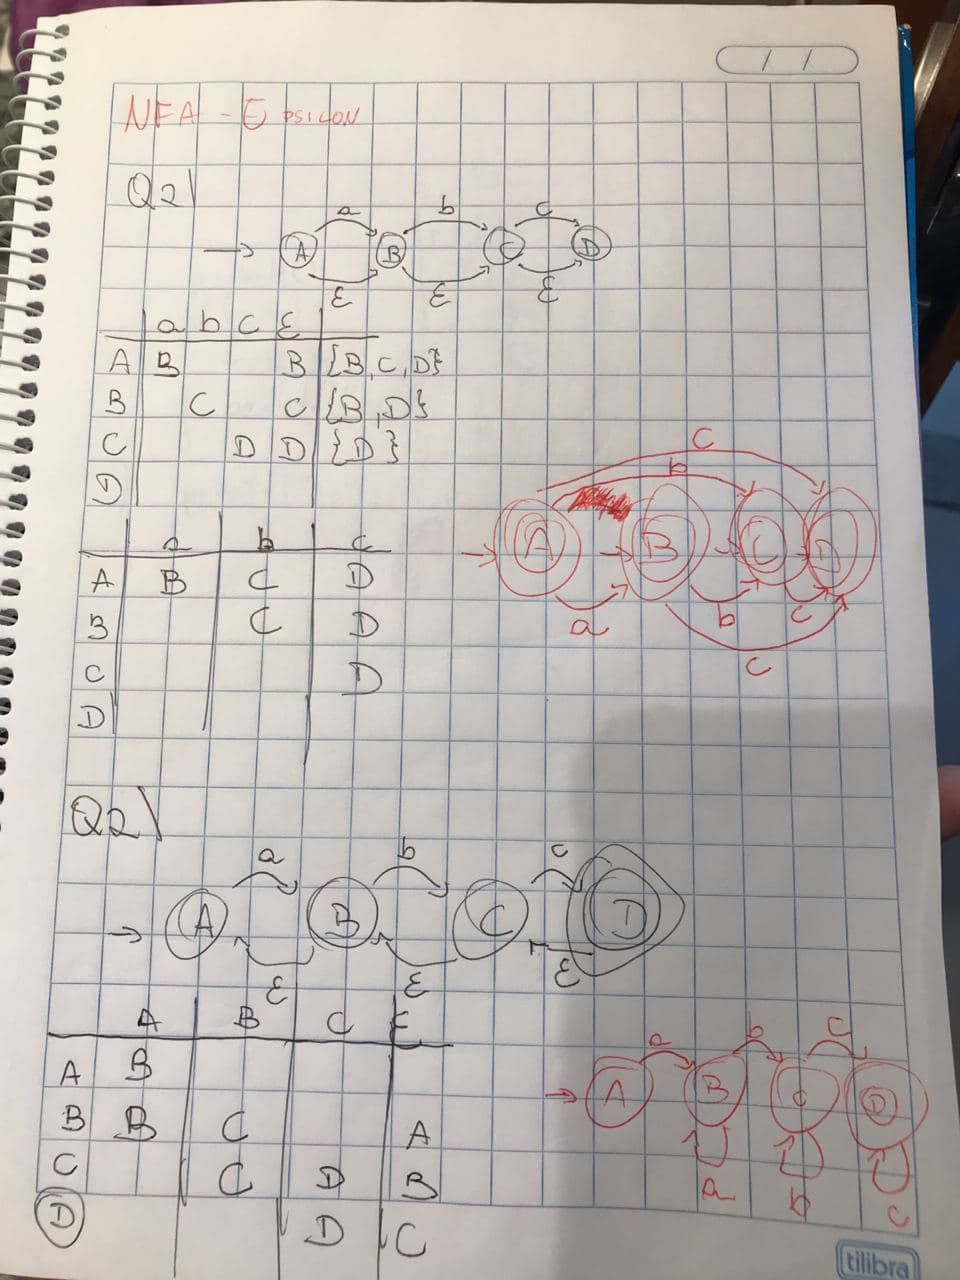 / /
NFA - EPSILON
Q2\
a b c
→ A B C D
ε ε ε
a b c ε
A B B {B, C, D}
B C C {B, D}
C D D {D}
D
c
b
→ A B C D
a b c
c
a b c
A B C D
B C D
C D
D
Q2\
a b c
→ A B C D
ε ε ε
A B C ε
A B
B B C A
C C D B
D D C
a b c
→ A B C D
a b c
tilibra